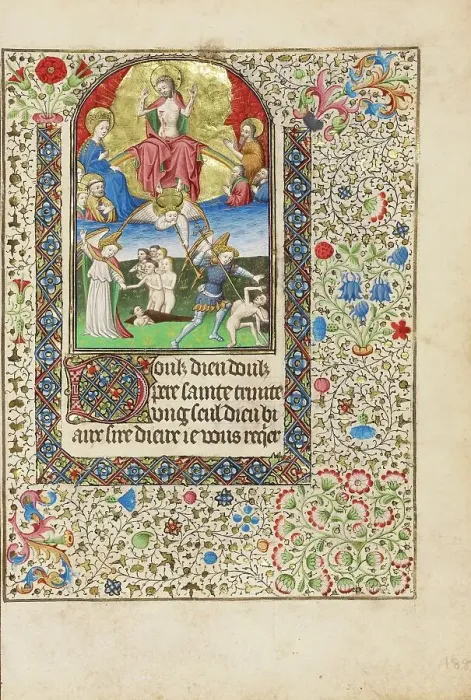 Doulz dieu doulz
pere sainte trinite
ung seul dieu bi
aux sire dieux ie vous requier